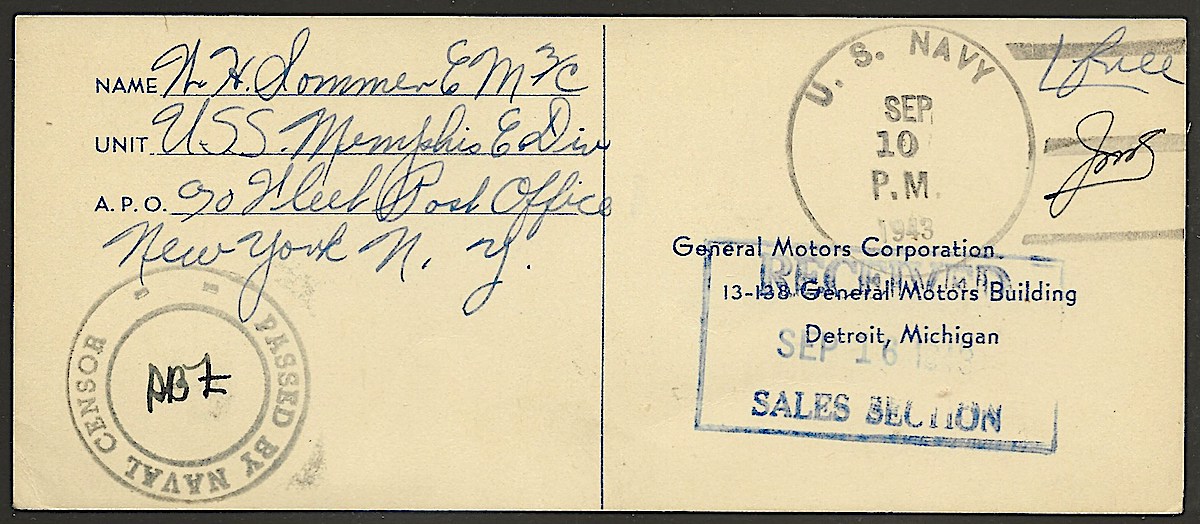 NAME W. H. Sommer EM 3/c
UNIT U.S.S. Memphis E Div
A.P.O. c/o Fleet Post Office
New York N. Y.
PASSED BY NAVAL CENSOR
ABF
U. S. NAVY
SEP
10
P.M.
1943
Free
General Motors Corporation
13-138 General Motors Building
Detroit, Michigan
RECEIVED
SEP 16 1943
SALES SECTION